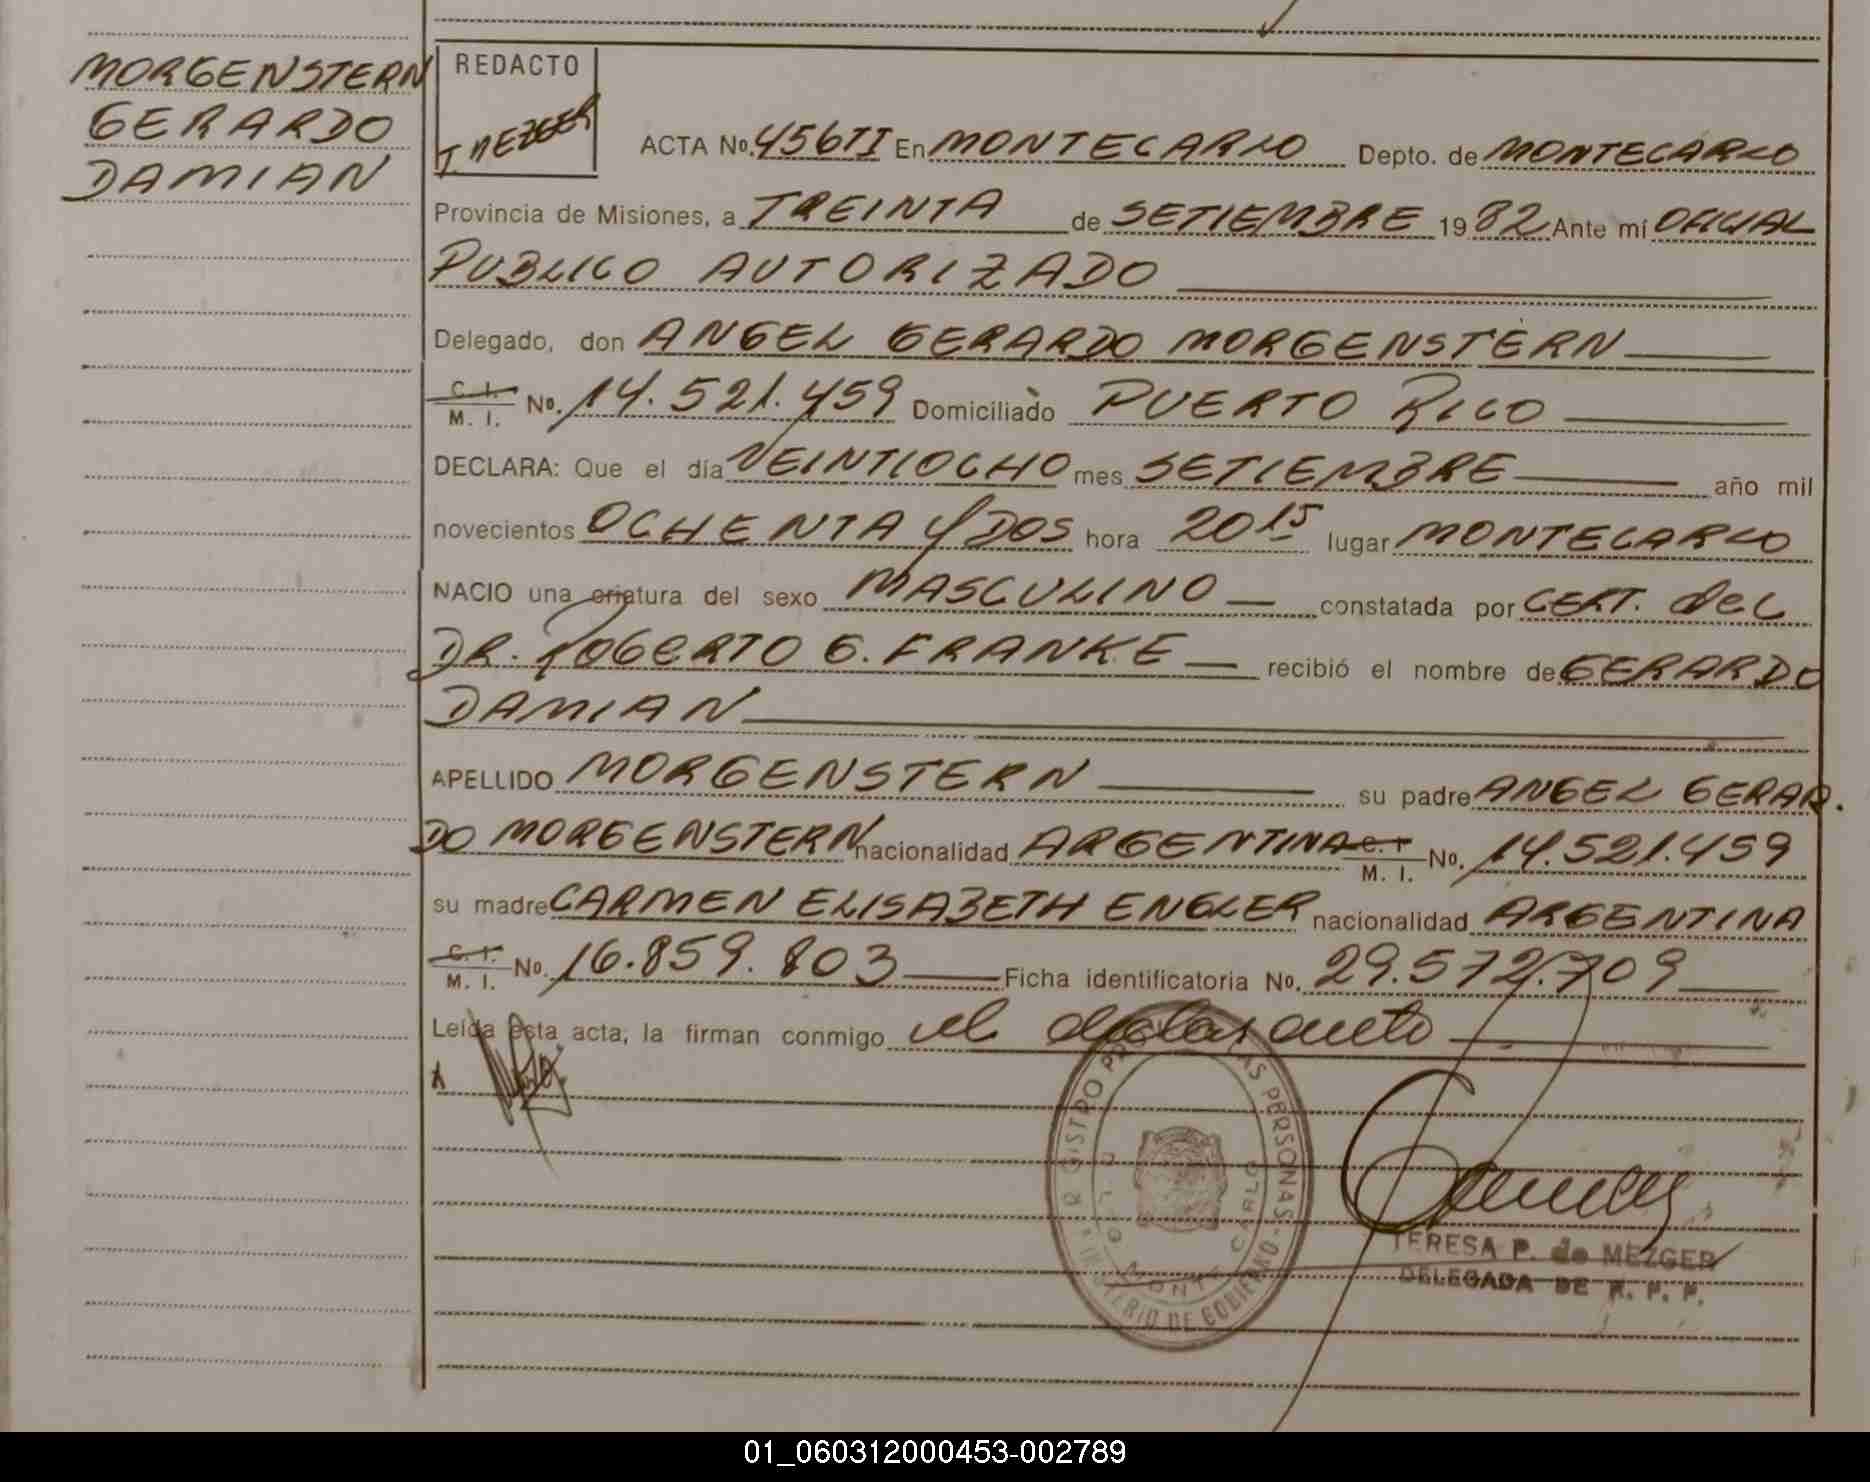 MORGENSTERN
GERARDO
DAMIAN
REDACTO
T. MEZGER
ACTA No. 456 TI En MONTECARLO Depto. de MONTECARLO
Provincia de Misiones, a TREINTA de SETIEMBRE 1982 Ante mí OFICIAL
PUBLICO AUTORIZADO
Delegado, don ANGEL GERARDO MORGENSTERN
C. I.
M. I. No. 14.521.459 Domiciliado PUERTO RICO
DECLARA: Que el día VEINTIOCHO mes SETIEMBRE año mil
novecientos OCHENTA Y DOS hora 20 15 lugar MONTECARLO
NACIO una criatura del sexo MASCULINO constatada por CERT. del
DR. ROBERTO G. FRANKE recibió el nombre de GERARDO
DAMIAN
APELLIDO MORGENSTERN su padre ANGEL GERAR.
DO MORGENSTERN nacionalidad ARGENTINA C. I. M. I. No. 14.521.459
su madre CARMEN ELISABETH ENGLER nacionalidad ARGENTINA
C. I.
M. I. No. 16.859.803 Ficha identificatoria No. 29.572.709
Leída esta acta, la firman conmigo el declarante
TERESA P. de MEZGER
DELEGADA DE R. P. P.
MINISTERIO DE GOBIERNO
01_060312000453-002789